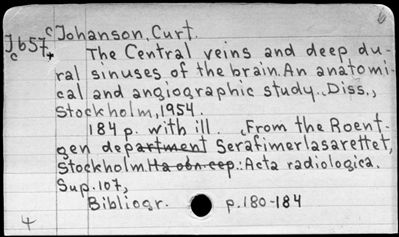 Jb57 Johanson, Curt.
The Central veins and deep du-
ral sinuses of the brain. An anatomi-
cal and angiographic study. Diss.,
Stockholm, 1954.
184 p. with ill. From the Roent-
gen department Serafimerlasarettet,
Stockholm. На обл. сер.: Acta radiologica.
Sup. 107,
Bibliogr. p. 180-184